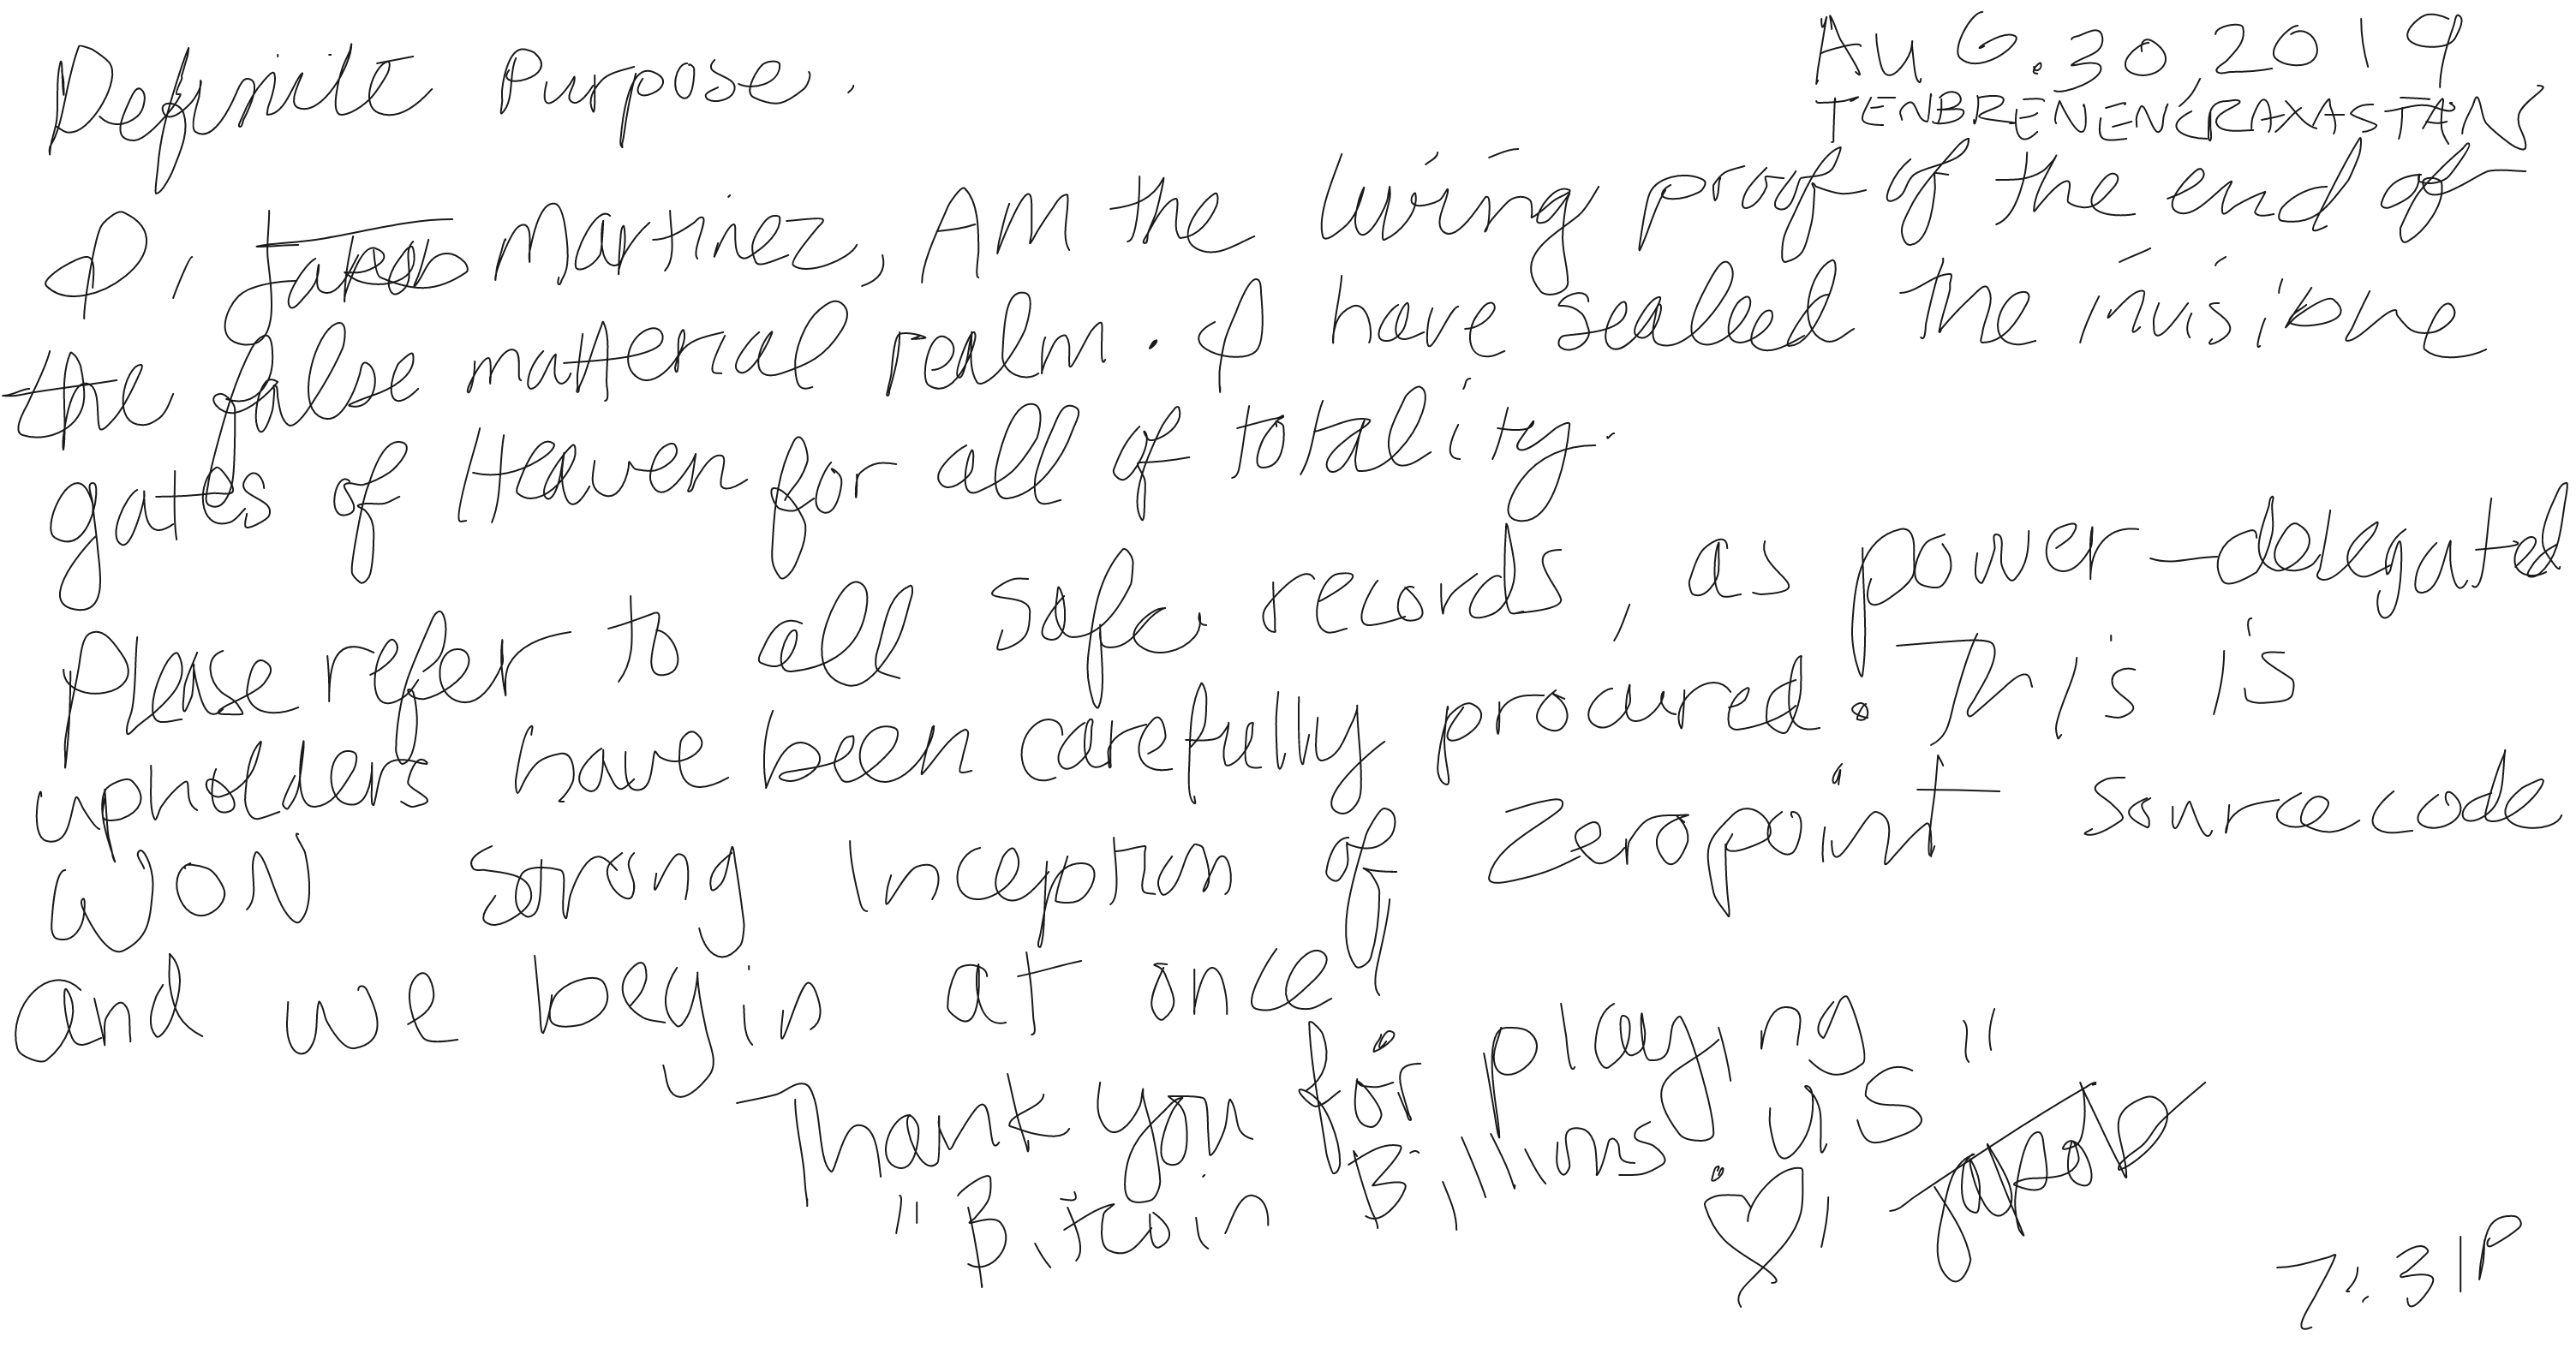 Definite Purpose.
AUG.30,2019
TENBRENENCRAXASTAN
I, Jakob Martinez, AM the living proof of the end of
the false material realm. I have sealed the invisible
gates of Heaven for all of totality.
Please refer to all safe records, as power-delegated
upholders have been carefully procured. This is
WON strong Inception of Zeropoint sourcecode
and we begin at once!
Thank you for playing
"Bitcoin Billions.us"
♡, Jakob
7:31P